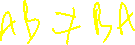 AB ≠ BA